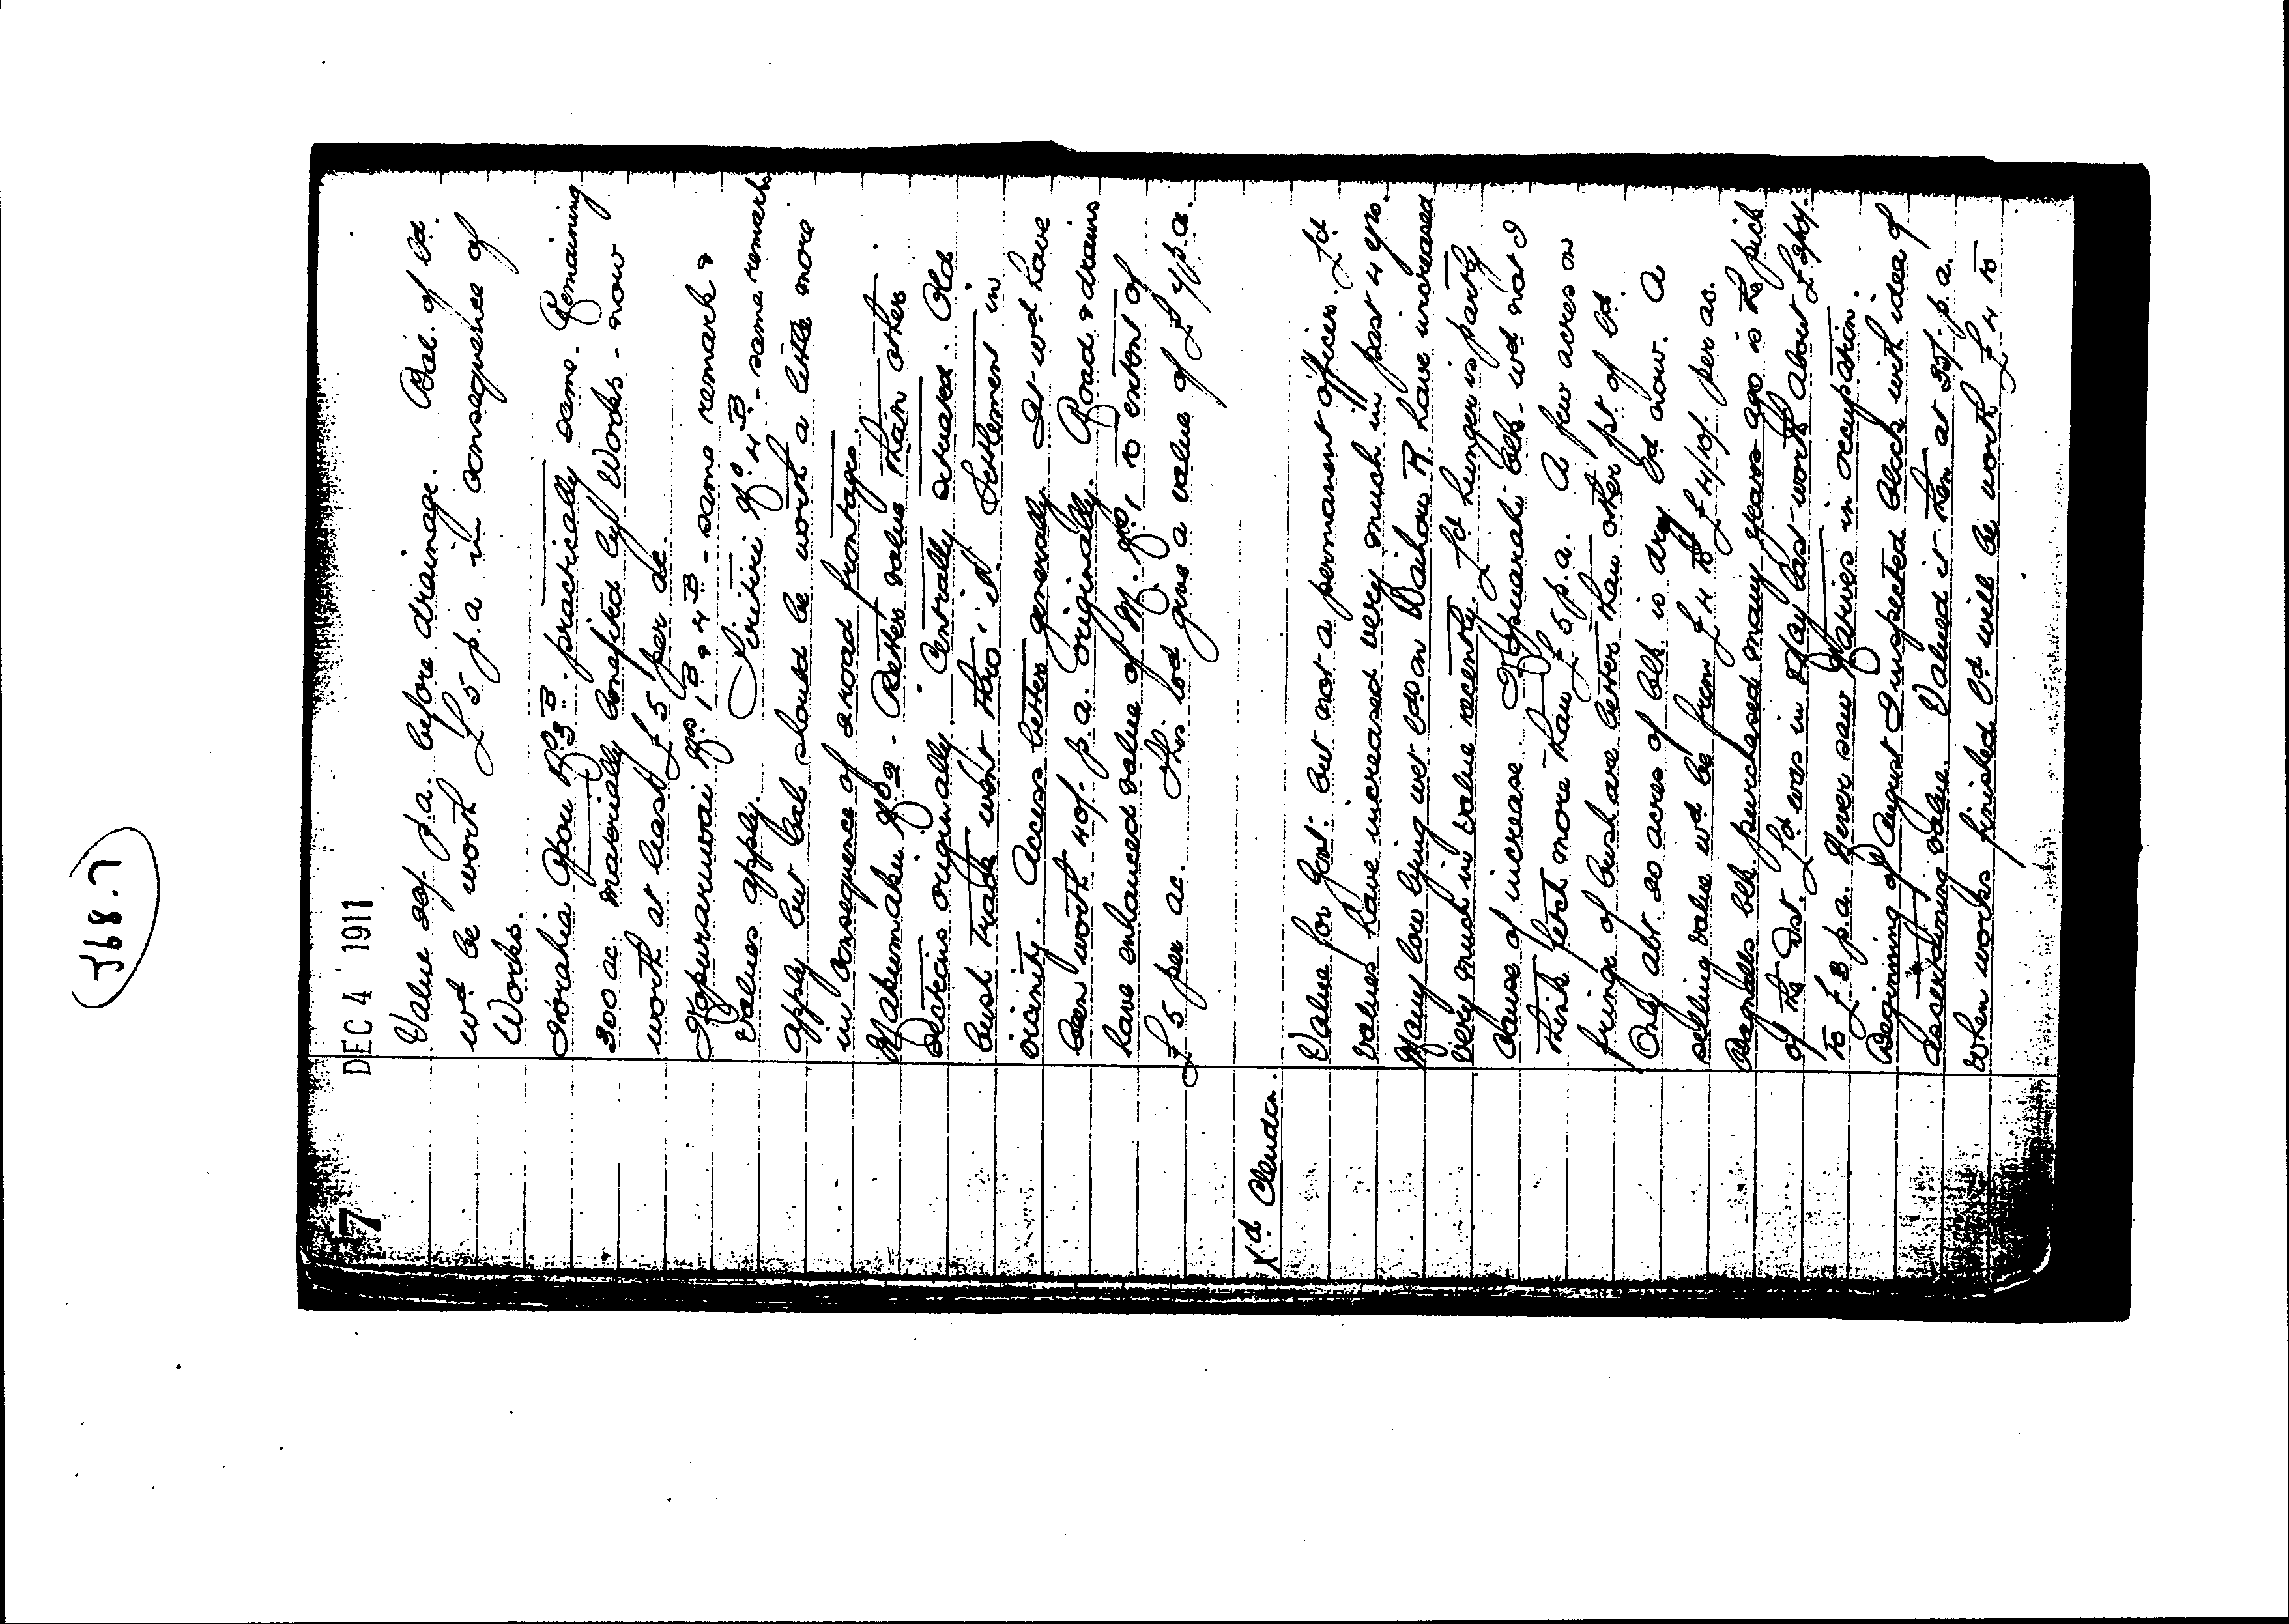 J68.7
7
DEC 4 1911
Value 20/- p.a. before drainage. Bal. of ld.
wd be worth £5 p.a in consequence of
Works.
practically same. Remaining
300 ac. materially benefited by Works - now
worth at least £5 per ac.
Kopuraruwai Nos 1B & 4B - same remark &
values apply. Sritini No 4B - same remarks
apply but bal should be worth a little more
in consequence of 2 road frontages.
Makumaku No 2 - Better value than other
sections originally. Centrally situated. Old
bush track went thro' it. Settlement in
vicinity. Access better generally. It wd have
been worth 40/- p.a. originally. Road & drains
have enhanced value of M. No 1 to extent of
£5 per ac. This wd give a value of £7 p.a.
Xd Clendon.
Value for Govt. but not a permanent officer. Ld
values have increased very much in past 4 yrs.
Many low lying wet lds on Waihou R have increased
very much in value recently. Ld hunger is partly
cause of increase. Kopuaraki blk - wd not I
think fetch more than £5 p.a. A few acres on
fringe of bush are better than other pt of ld.
Only abt 20 acres of blk is dry ld now. A
selling value wd be from £4 to £4/10/- per ac.
Bagnalls blk purchased many years ago is the pick
of the Dst. Ld was in May last worth about £2/10/-
to £3 p.a. Never saw Natives in occupation.
Beginning of August I inspected block with idea of
ascertaining value. Valued it then at 35/- p.a.
When works finished ld will be worth £4 to